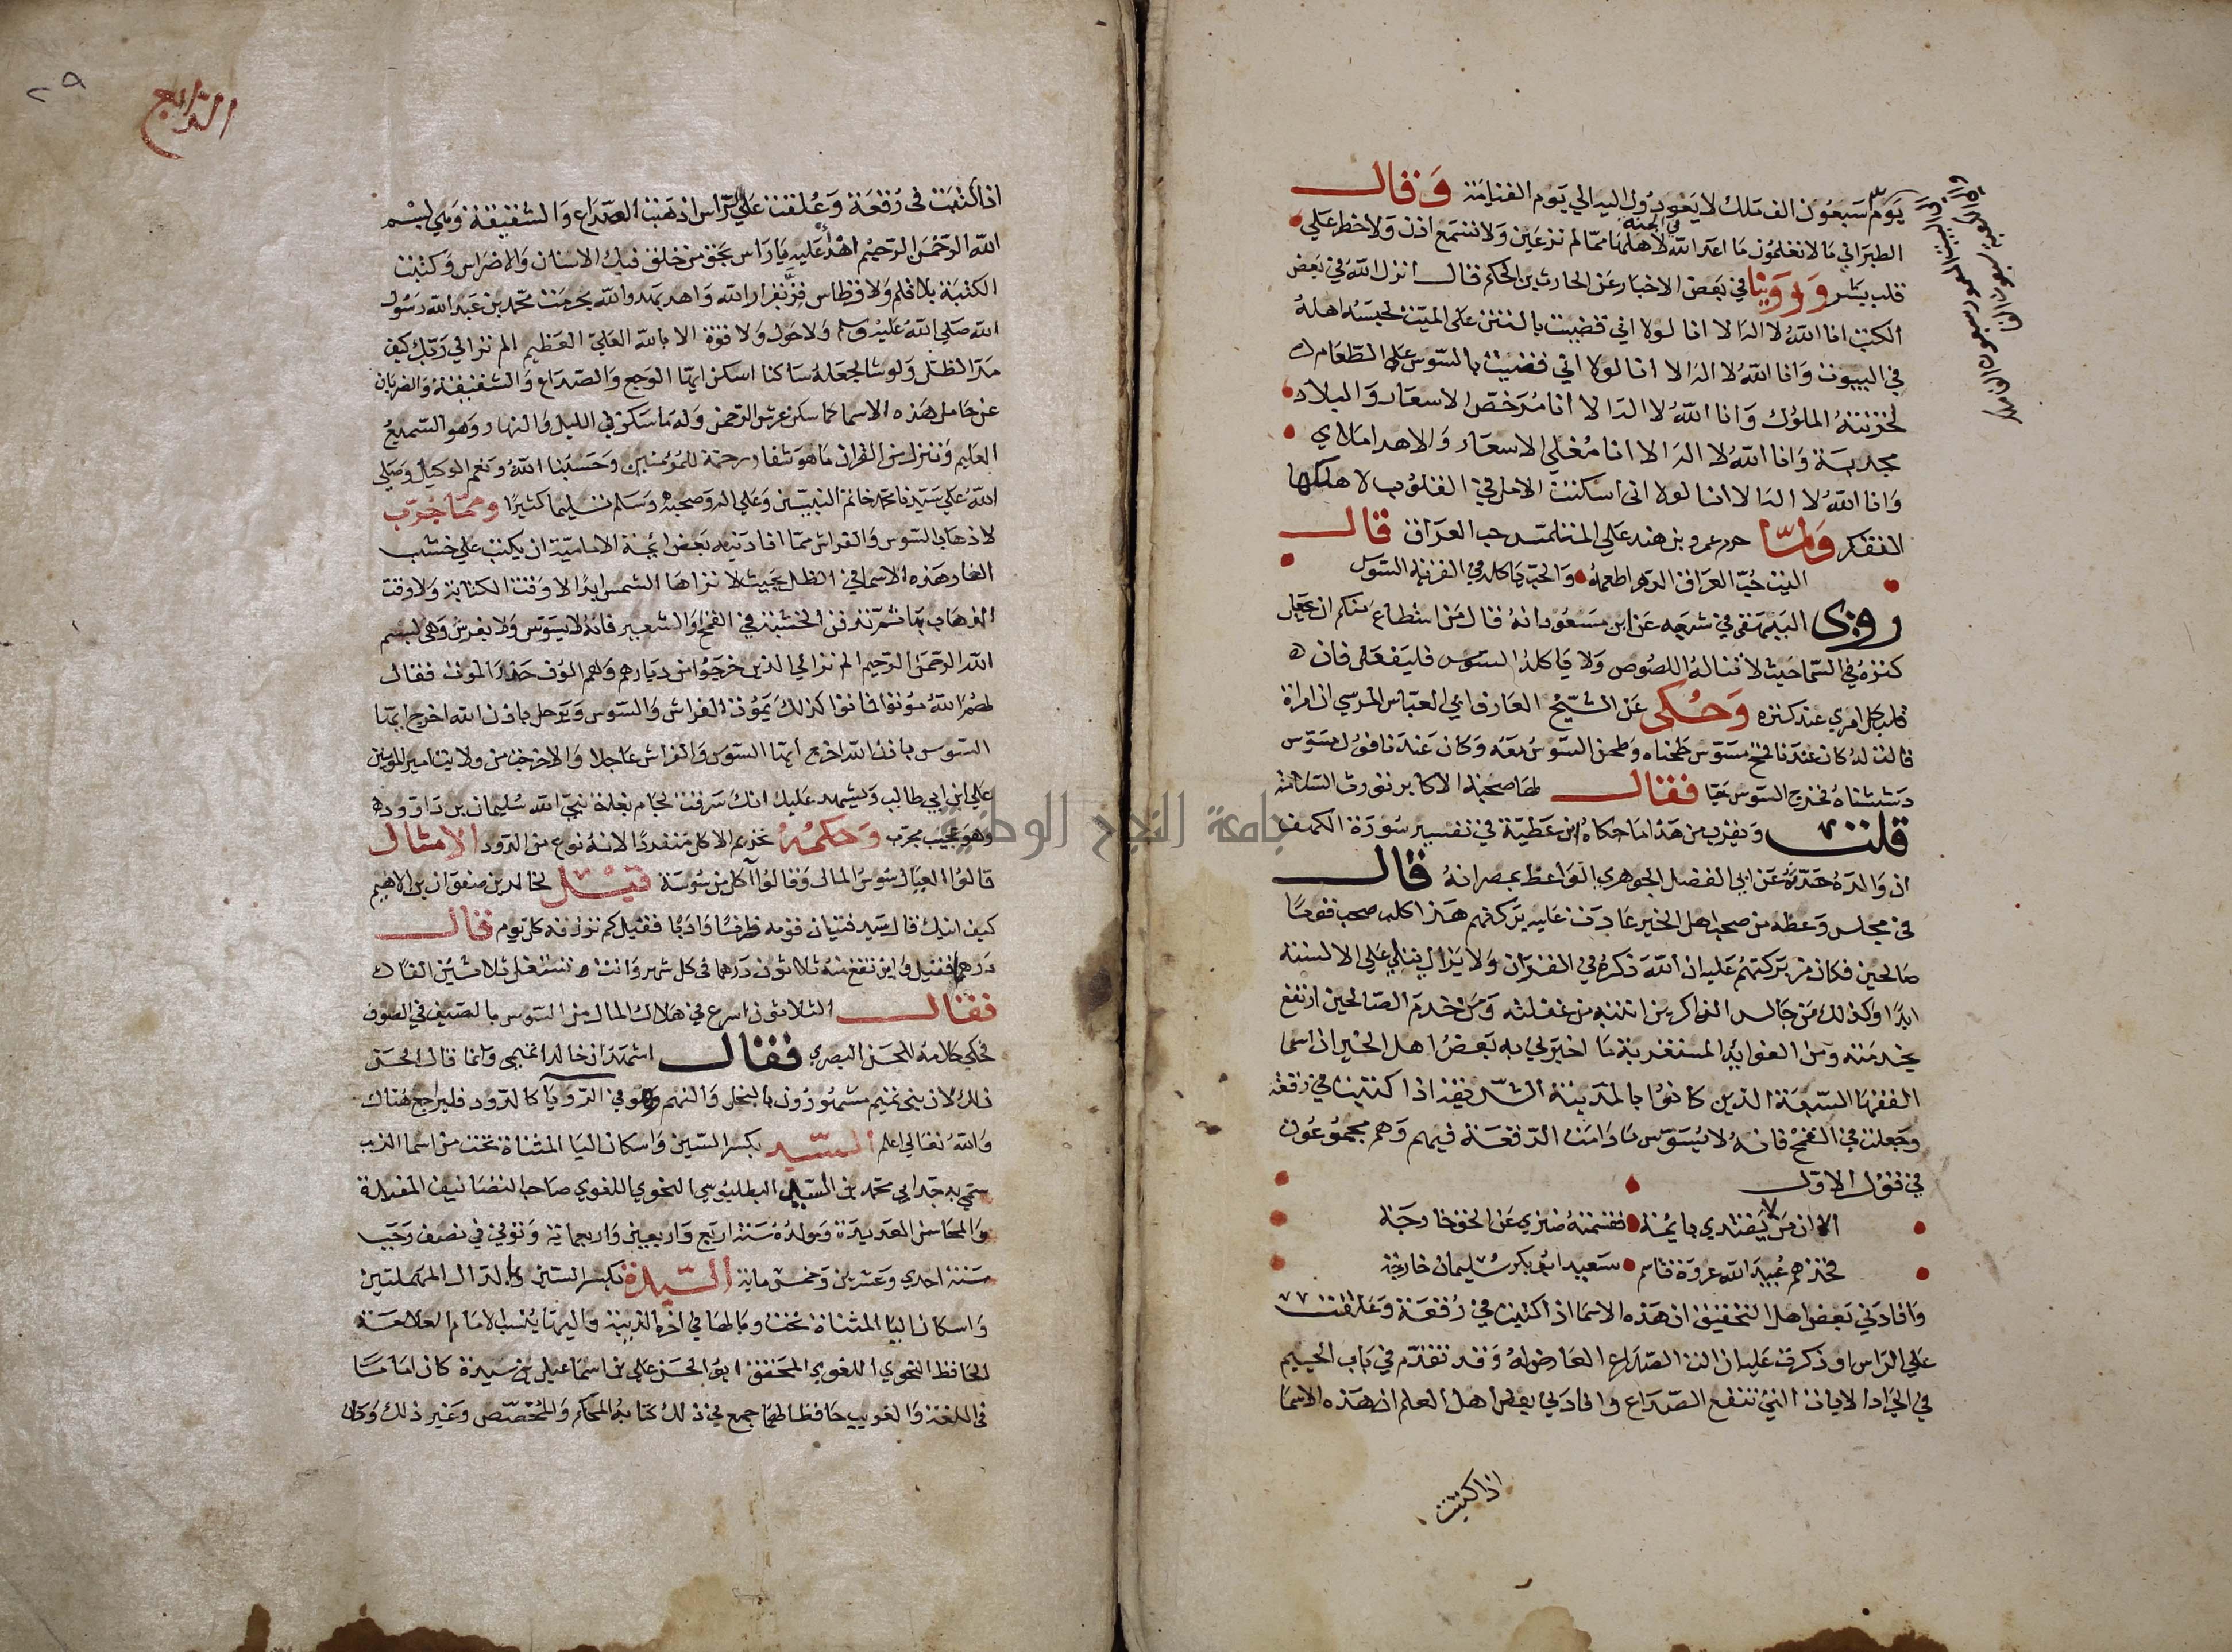 يوم سبعون الف ملك لا يعودون اليه الي يوم القيامة وقال
الطبراني ما لا تعلمون ما اعد الله لاهلها في الجنة مما لم تر عين ولا تسمع اذن ولا خطر علي
قلب بشر وروينا في بعض الاخبار عن الحارث بن الحكم قال انزل الله في بعض
الكتب انا الله لا اله الا انا لولا اني قضيت بالنتن على الميت لحبسه اهله
في البيوت وانا الله لا اله الا انا لولا اني قضيت بالسوس على الطعام
لخزنته الملوك وانا الله لا اله الا انا مرخص الاسعار والبلاد
مجدبة وانا الله لا اله الا انا مغلي الاسعار والاهدا ملاي
وانا الله لا اله الا انا لولا اني اسكنت الامل في القلوب لاهلكها
التفكر ولما حرم عمرو بن هند على المتلمس حب العراق قال
اليت حب العراق الدهر اطعمه والحب ياكله في القرية السوس
روى البيهقي في شعبه عن ابن مسعود انه قال من استطاع منكم ان يجعل
كنزه في السما حيث لا تناله اللصوص ولا ياكله السوس فليفعل فان
قلب كل امري عند كنزه وحكى عن الشيخ العارف ابي العباس المرسي ان امراة
قالت له كان عندنا قمح مسوس طحناه وطحن السوس معه وكان عندنا فول مسوس
دششناه فخرج السوس حيا فقال لها صحبة الاكابر تورث السلامة
قلت ويقرب من هذا ما حكاه ابن عطية في تفسير سورة الكهف
ان والده حدثه عن ابي الفضل الجوهري الواعظ بمصر انه قال
في مجلس وعظه من صحب اهل الخير عادت عليه بركتهم هذا كلب صحب قوما
صالحين فكان من بركتهم عليه ان الله ذكره في القران ولا يزال يتلى على الالسنة
ابدا وكذلك من جالس الذاكرين انتبه من غفلته ومن خدم الصالحين ارتفع
بخدمته ومن الفوائد المستغربة ما اخبرني به بعض اهل الخير ان اسما
الفقها السبعة الذين كانوا بالمدينة الشريفة اذا كتبت في رقعة
وجعلت في القمح فانه لا يسوس ما دامت الرقعة فيهم وهم مجموعون
في قول الاول
الا ان من لا يقتدي بايمة فقسمته ضيزي عن الحق خارجة
فخذهم عبيد الله عروة قاسم سعيد ابو بكر سليمان خارجة
وافادني بعض اهل التحقيق ان هذه الاسما اذا كتبت في رقعة وعلقت
علي الراس او ذكرت عليه ازالت الصداع العارض له وقد تقدم في باب الجيم
في الجراد الايات التي تنفع الصداع وافادني بعض اهل العلم ان هذه الاسما
اذا كتبت
الرابع
٢٩
اذا كتبت في رقعة وعلقت علي الراس اذهبت الصداع والشقيقة وهي بسم
الله الرحمن الرحيم اهدا عليه يا راس بحق من خلق فيك الاسنان والاضراس وكتب
الكتبة بلا قلم ولا قرطاس قر بقرار الله واهد بهدو الله بحرمة محمد بن عبد الله رسول
الله صلى الله عليه وسلم ولا حول ولا قوة الا بالله العلي العظيم الم تر الي ربك كيف
مد الظل ولو شا لجعله ساكنا اسكن ايها الوجع والصداع والشقيقة والضربان
عن حامل هذه الاسما كما سكن عرش الرحمن وله ما سكن في الليل والنهار وهو السميع
العليم وننزل من القران ما هو شفا ورحمة للمومنين وحسبنا الله ونعم الوكيل وصلي
الله علي سيدنا محمد خاتم النبيين وعلي اله وصحبه وسلم تسليما كثيرا ومما جرب
لاذهاب السوس والفراش مما افادنيه بعض ايمة الامامية ان يكتب علي خشب
الغار هذه الاسما في الظل بحيث لا تراها الشمس ابدا لا وقت الكتابة ولا وقت
الذهاب بها ثم تدفن الخشبة في القمح او الشعير فانه لا يسوس ولا يفرش وهي بسم
الله الرحمن الرحيم الم تر الي الذين خرجوا من ديارهم وهم الوف حذر الموت فقال
لهم الله موتوا فماتوا كذلك يموت الفراش والسوس ويرحل باذن الله اخرج ايها
السوس باذن الله اخرج ايها السوس والفراش عاجلا والا خرجت من ولاية امير المومنين
علي ابن ابي طالب ويشهد عليك انك سرقت لجام بغلة نبي الله سليمان بن داوود
وهو عجيب مجرب وحكمه تحريم الاكل منفردا لانه نوع من الدود الامثال
قالوا العيال سوس المال وقالوا آكل من سوسة قيل لخالد بن صفوان بن الاهيم
كيف ابنك قال سيد فتيان قومه ظرفا وادبا فقيل كم ترزقه كل يوم قال
درهما فقيل واين تقع منه ثلاثون درهما في كل شهر وانت تستغل ثلاثين الفا
فقال الثلاثون اسرع في هلاك المال من السوس بالصيف في الصوف
فحكي كلامه للحسن البصري فقال اشهد ان خالدا تميمي وانما قال الحسن
ذلك لان بني تميم مشهورون بالبخل والنهم وهو في الرويا كالدود فليراجع هناك
والله تعالي اعلم السيد بكسر السين واسكان اليا المثناة تحت من اسما الذيب
سمي به جد ابي محمد بن السيد البطليوسي النحوي اللغوي صاحب التصانيف المفيدة
والمحاسن العديدة ومولده سنة اربع واربعين واربعماية وتوفي في نصف رجب
سنة احدي وعشرين وخمس ماية السيدة بكسر السين والدال المهملتين
واسكان اليا المثناة تحت وبالها في اخره الذيبة واليها ينسب الامام العلامة
الحافظ النحوي اللغوي المحقق ابو الحسن علي بن اسماعيل بن سيدة كان اماما
في اللغة والغريب حافظا لهما جمع في ذلك كتابه المحكم والمخصص وغير ذلك وكان
جامعة النجاح الوطنية